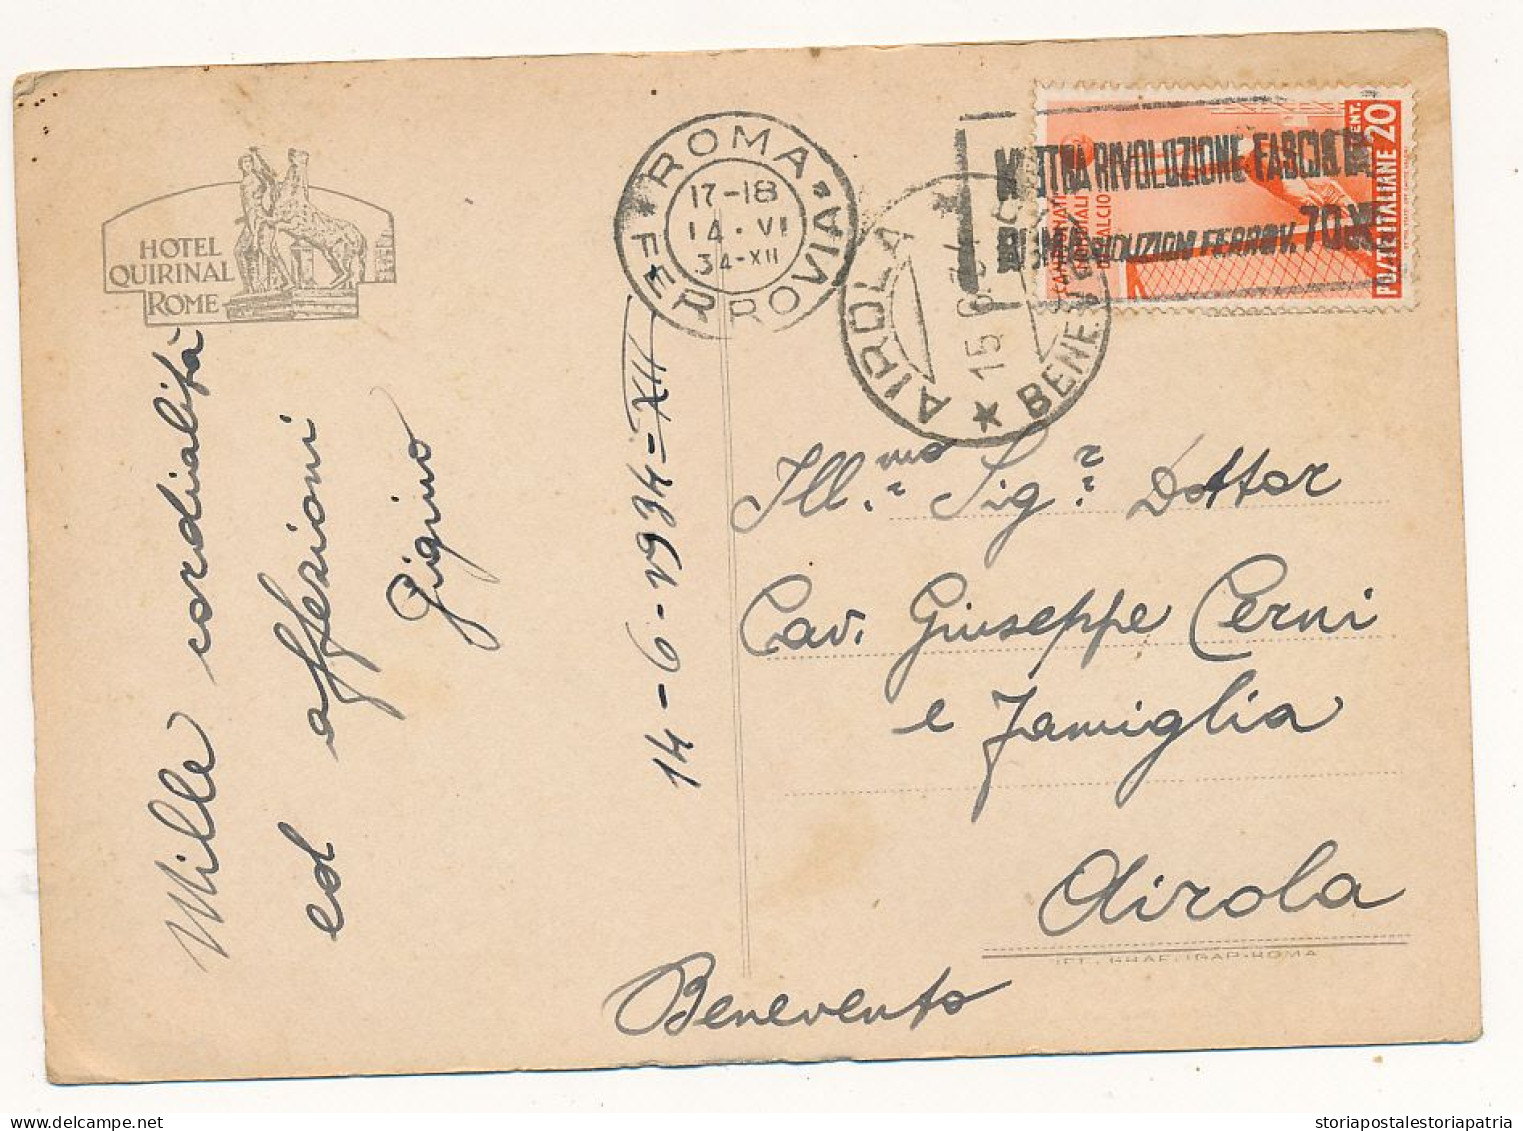 HOTEL
QUIRINAL
ROME
ROMA
FERROVIA
17-18
14·VI
34-XII
MOSTRA RIVOLUZIONE FASCISTA
ROMA RIDUZIONI FERROV. 70%
AIROLA
15 6 34
BENEVENTO
CENT. 20
POSTE ITALIANE
CAMPIONATI
MONDIALI
CALCIO
Mille cordialità
ed affezioni
Gigino
14-6-1934-XII
Ill.mo Sig.r Dottor
Cav. Giuseppe Cerni
e Famiglia
Airola
Benevento
IST. GRAF. IGAP-ROMA
storiapostalestoriapatria